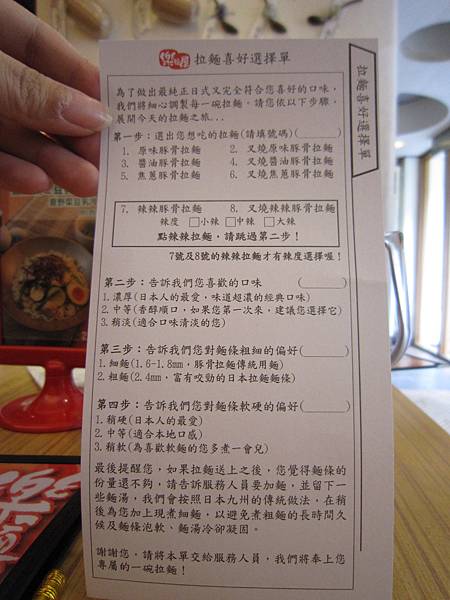 樂麵屋 拉麵喜好選擇單
拉麵喜好選擇單
為了做出最純正日式又完全符合您喜好的口味，
我們將細心調製每一碗拉麵。請您依以下步驟，
展開今天的拉麵之旅...
第一步：選出您想吃的拉麵(請填號碼)(　　)
1. 原味豚骨拉麵　2. 叉燒原味豚骨拉麵
3. 醬油豚骨拉麵　4. 叉燒醬油豚骨拉麵
5. 焦蔥豚骨拉麵　6. 叉燒焦蔥豚骨拉麵
7. 辣辣豚骨拉麵　8. 叉燒辣辣豚骨拉麵
辣度 □小辣 □中辣 □大辣
點辣辣拉麵，請跳過第二步！
7號及8號的辣辣拉麵才有辣度選擇喔！
第二步：告訴我們您喜歡的口味　(　　)
1.濃厚(日本人的最愛，味道超濃的經典口味)
2.中等(香醇順口，如果您第一次來，建議您選擇它)
3.稍淡(適合口味清淡的您)
第三步：告訴我們您對麵條粗細的偏好(　　)
1.細麵(1.6-1.8mm，豚骨拉麵傳統用麵)
2.粗麵(2.4mm，富有咬勁的日本拉麵麵條)
第四步：告訴我們您對麵條軟硬的偏好(　　)
1.稍硬(日本人的最愛)
2.中等(適合本地口感)
3.稍軟(為喜歡軟麵的您多煮一會兒)
最後提醒您，如果拉麵送上之後，您覺得麵條的
份量還不夠，請告訴服務人員要加麵，並留下一
些麵湯，我們會按照日本九州的傳統做法，在稍
後為您加上現煮細麵，以避免煮粗麵的長時間久
候及麵條泡軟、麵湯冷卻凝固。
謝謝您，請將本單交給服務人員，我們將奉上您
專屬的一碗拉麵！